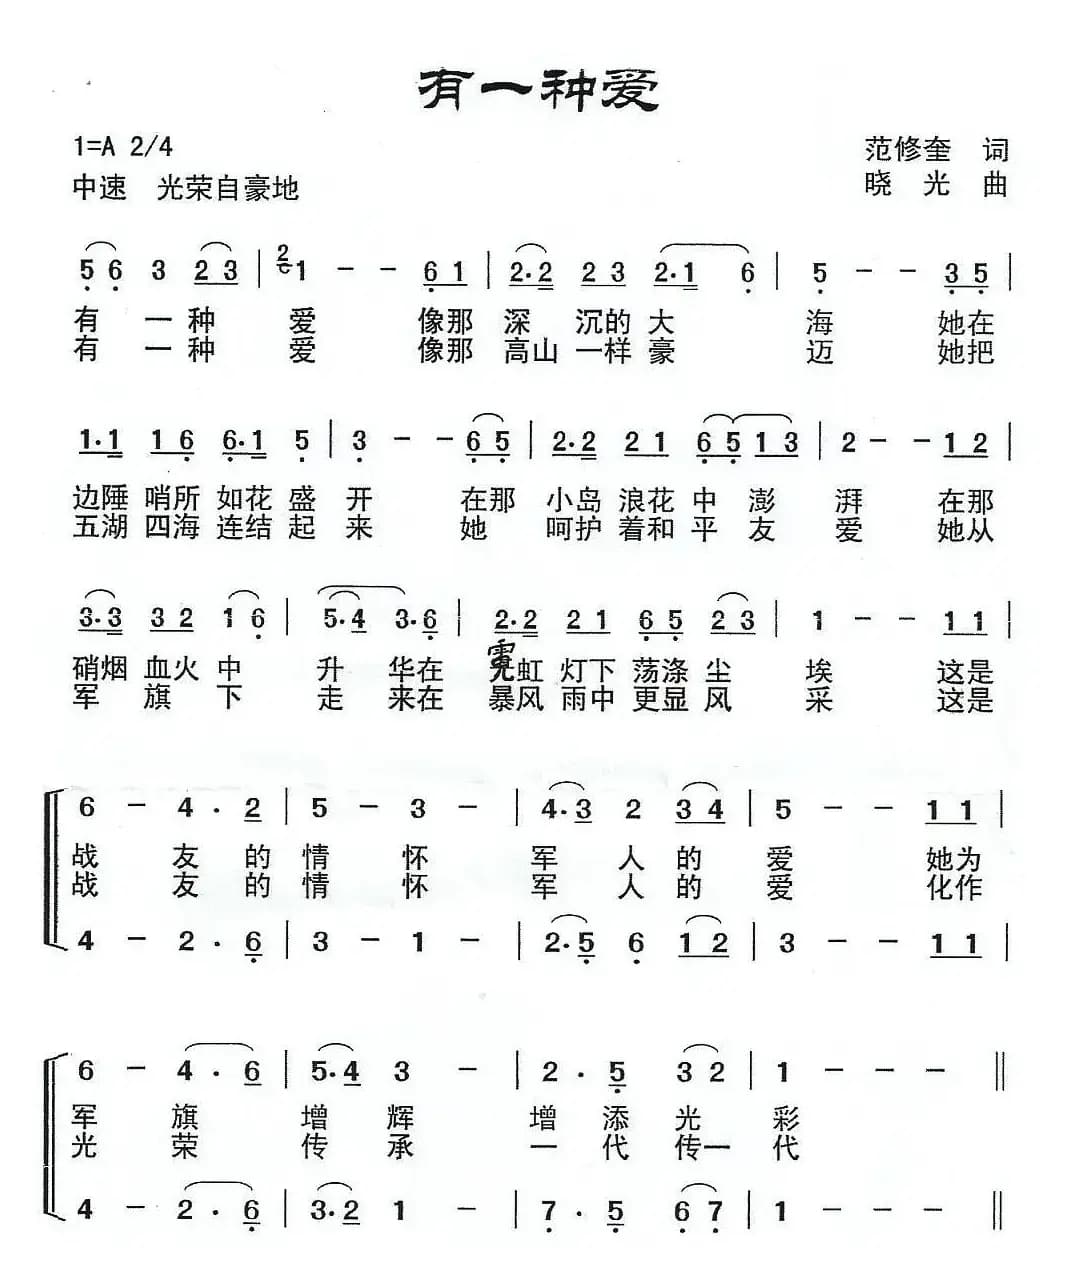 有一种爱
1=A 2/4
范修奎 词
中速 光荣自豪地
晓 光 曲
5 6 3 2 3 | 2 1 - - 6 1 | 2·2 2 3 2·1 6 | 5 - - 3 5 |
有 一 种 爱 像那 深 沉的 大 海 她在
有 一 种 爱 像那 高山 一样 豪 迈 她把
1·1 1 6 6·1 5 | 3 - - 6 5 | 2·2 2 1 6 5 1 3 | 2 - - 1 2 |
边陲 哨所 如花 盛 开 在那 小岛 浪花 中 澎 湃 在那
五湖 四海 连结 起 来 她 呵护 着和 平 友 爱 她从
3·3 3 2 1 6 | 5·4 3·6 | 2·2 2 1 6 5 2 3 | 1 - - 1 1 |
硝烟 血火 中 升 华在 霓虹 灯下 荡涤 尘 埃 这是
军 旗 下 走 来在 暴风 雨中 更显 风 采 这是
6 - 4 · 2 | 5 - 3 - | 4·3 2 3 4 | 5 - - 1 1 |
战 友 的 情 怀 军 人 的 爱 她为
战 友 的 情 怀 军 人 的 爱 化作
4 - 2 · 6 | 3 - 1 - | 2·5 6 1 2 | 3 - - 1 1 |
6 - 4 · 6 | 5·4 3 - | 2 · 5 3 2 | 1 - - - ‖
军 旗 增 辉 增 添 光 彩
光 荣 传 承 一 代 传一 代
4 - 2 · 6 | 3·2 1 - | 7 · 5 6 7 | 1 - - - ‖